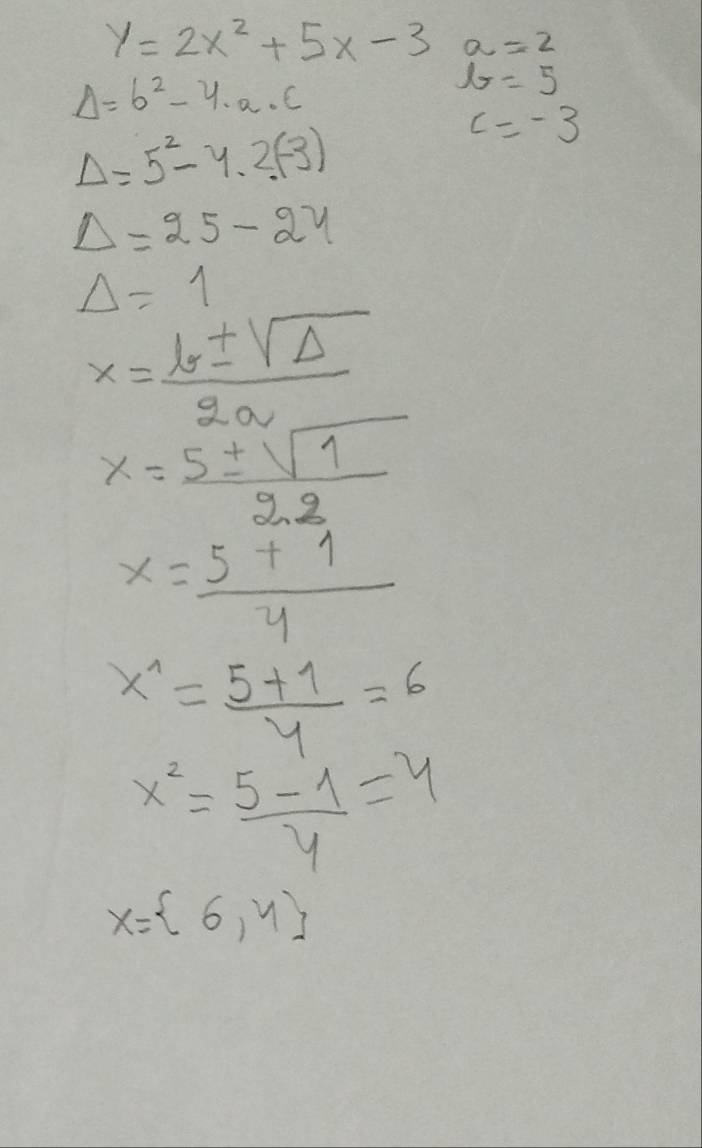 y = 2x² + 5x - 3 a = 2
b = 5
Δ = b² - 4.a.c
c = -3
Δ = 5² - 4.2.(-3)
Δ = 25 - 24
Δ = 1
x = b ± √Δ
2a
x = 5 ± √1
2.2
x = 5 + 1
4
x¹ = 5 + 1 = 6
4
x² = 5 - 1 = 4
4
x = { 6, 4 }